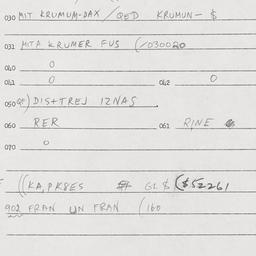 030 MIT KRUMUM-DAX / QED KRUMUN- $
031 MITA KRUMER FUS (/030020
040 0
041 0 042 0
050 DIS+TREJ IZNAS
060 RER 061 RINE
070 0
GL $ ($52261
902 FRAN UN FRAN (160